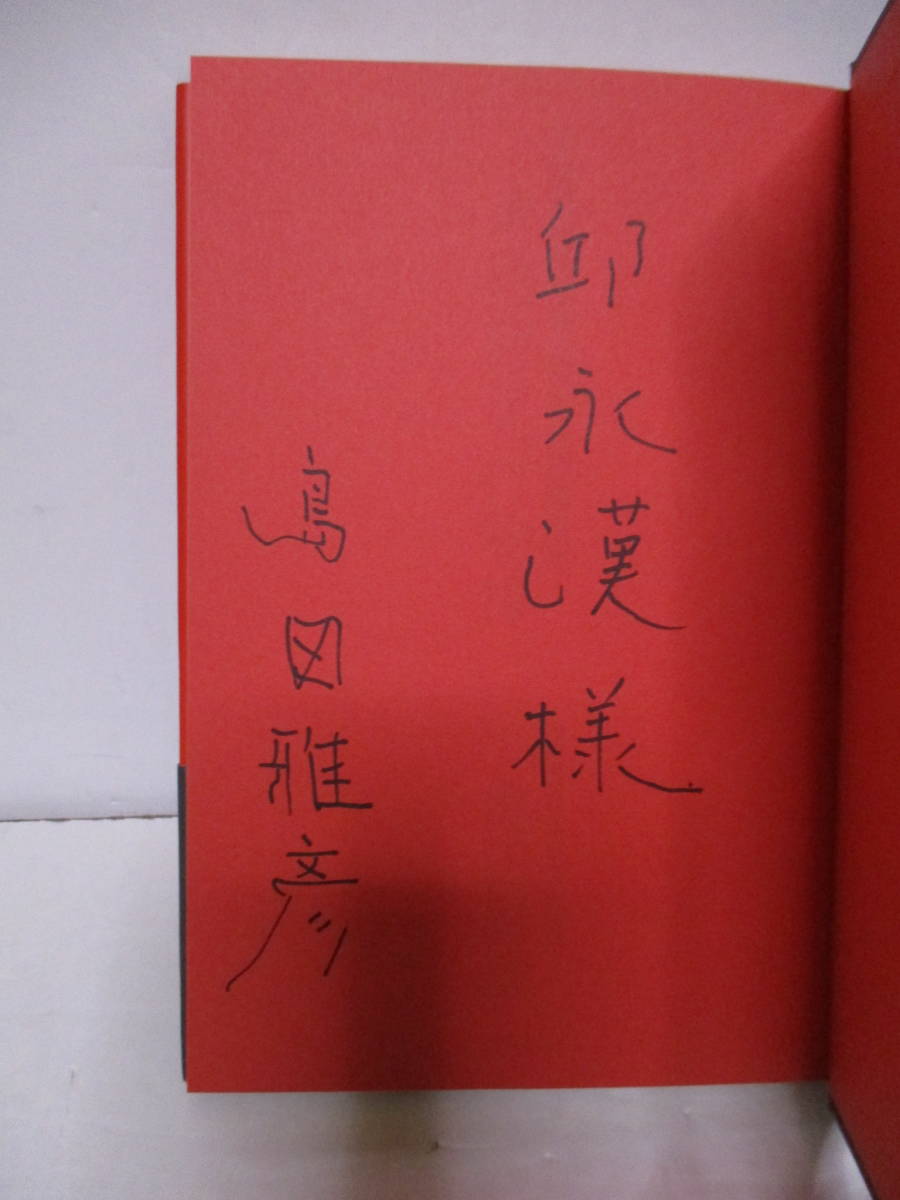 邱永漢様
島田雅彦